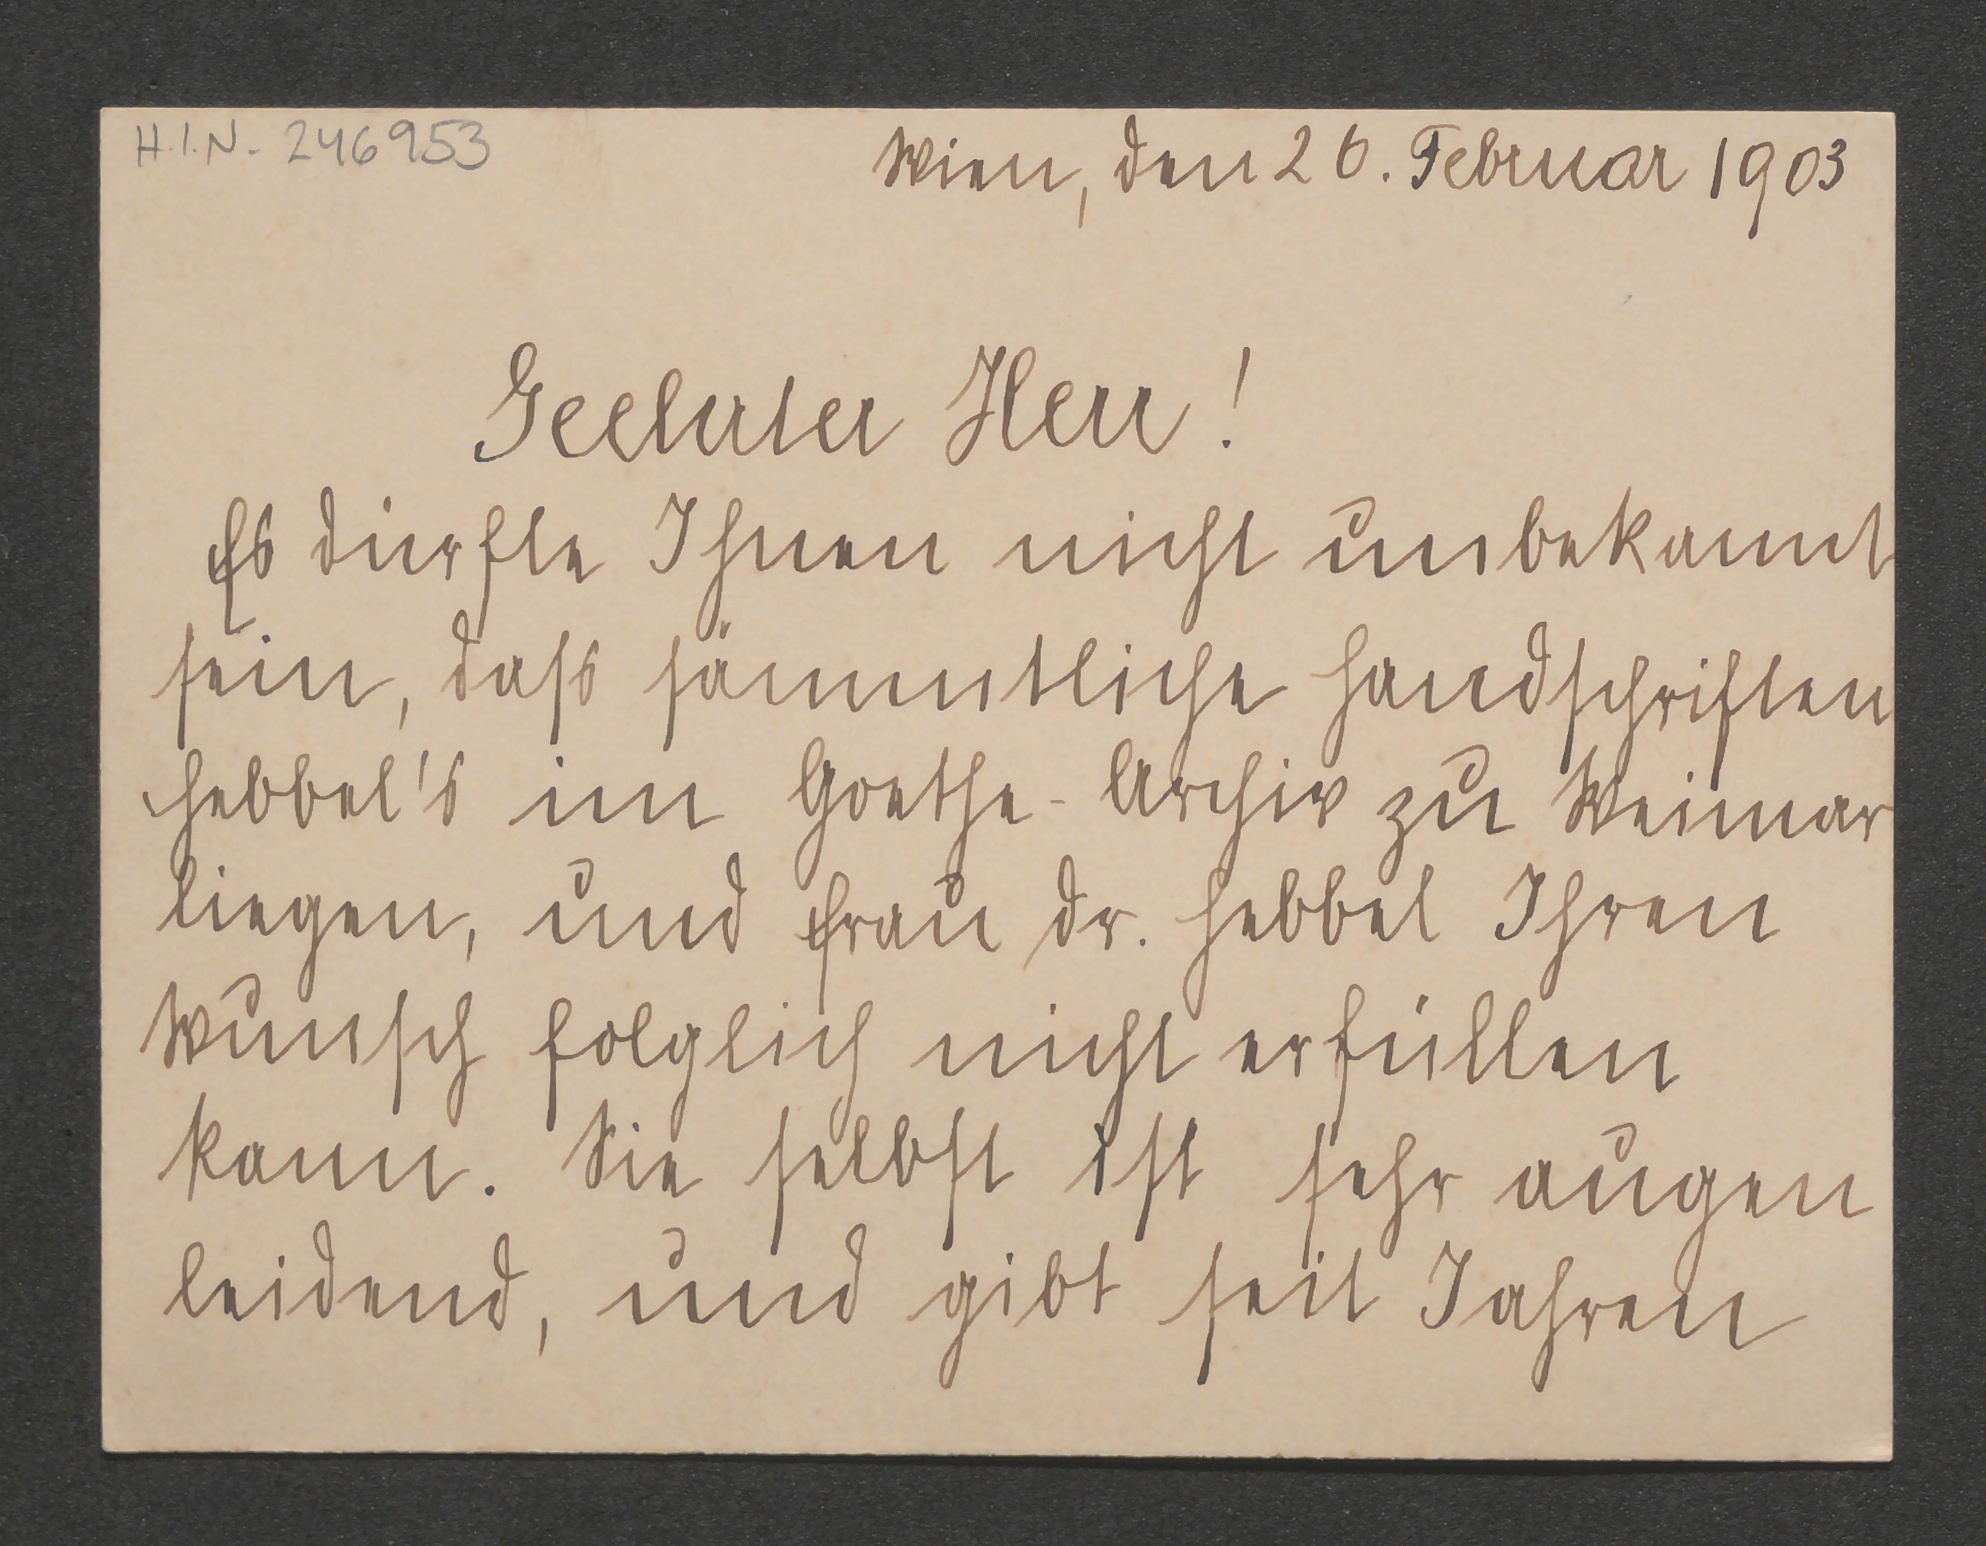 H.I.N. 246953
Wien, den 26. Februar 1903
Geehrter Herr!
Es dürfte Ihnen nicht unbekannt
sein, dass sämmtliche Handschriften
Hebbel's im Goethe-Archiv zu Weimar
liegen, und Frau Dr. Hebbel Ihren
Wunsch folglich nicht erfüllen
kann. Sie selbst ist sehr augen
leidend, und gibt seit Jahren